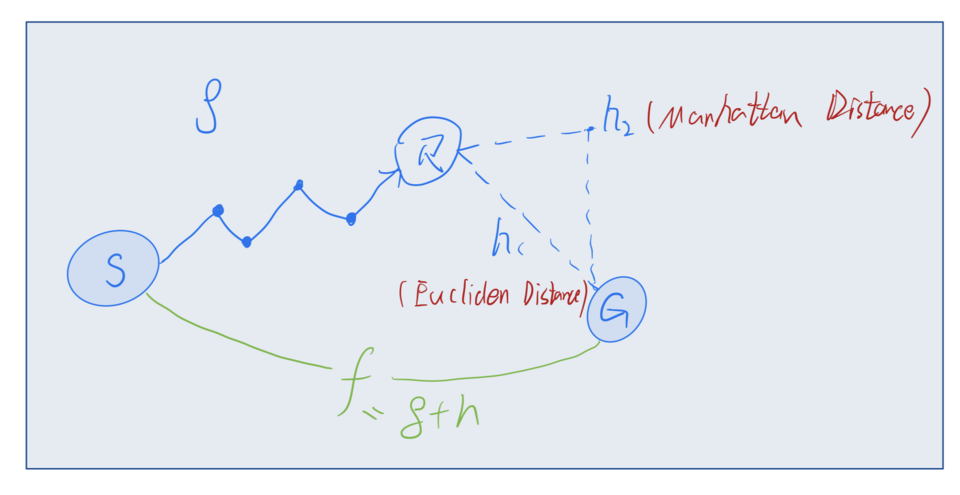 g
R
h₂ (Manhattan Distance)
S
h₁
(Eucliden Distance)
G
f
= g+h